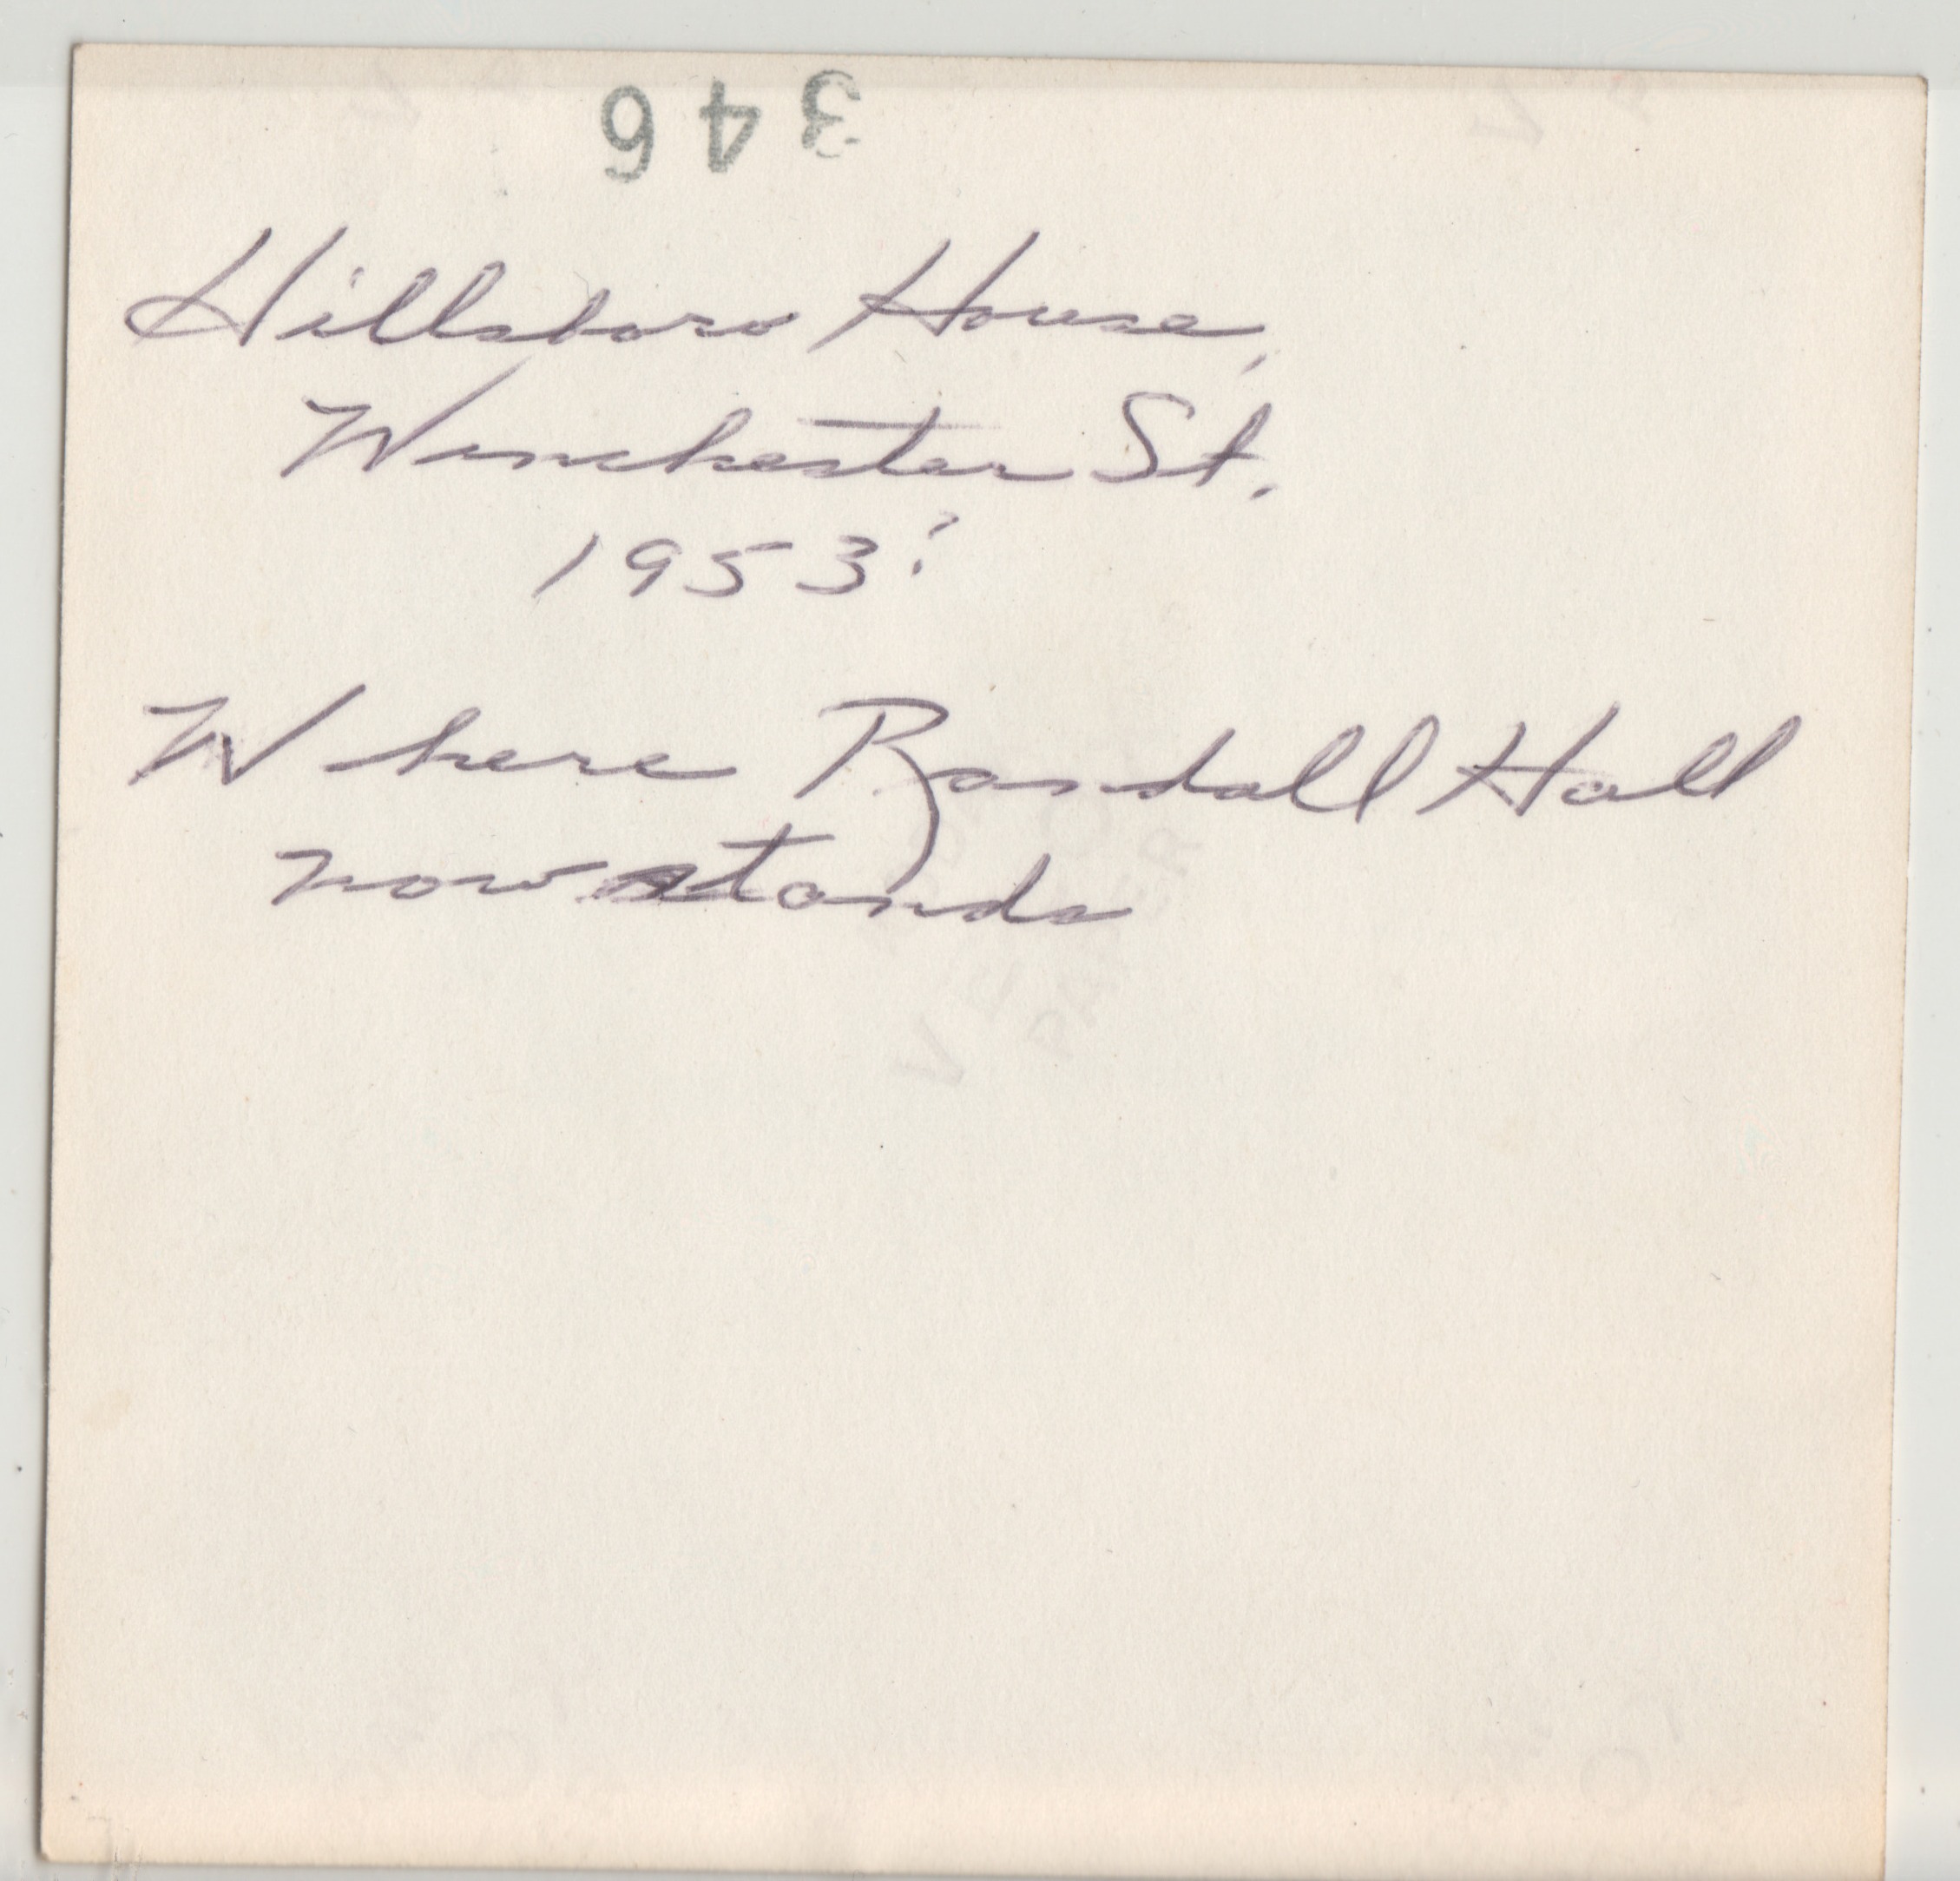 346
Hillsboro House,
Winchester St.
1953?
Where Randall Hall
now stands